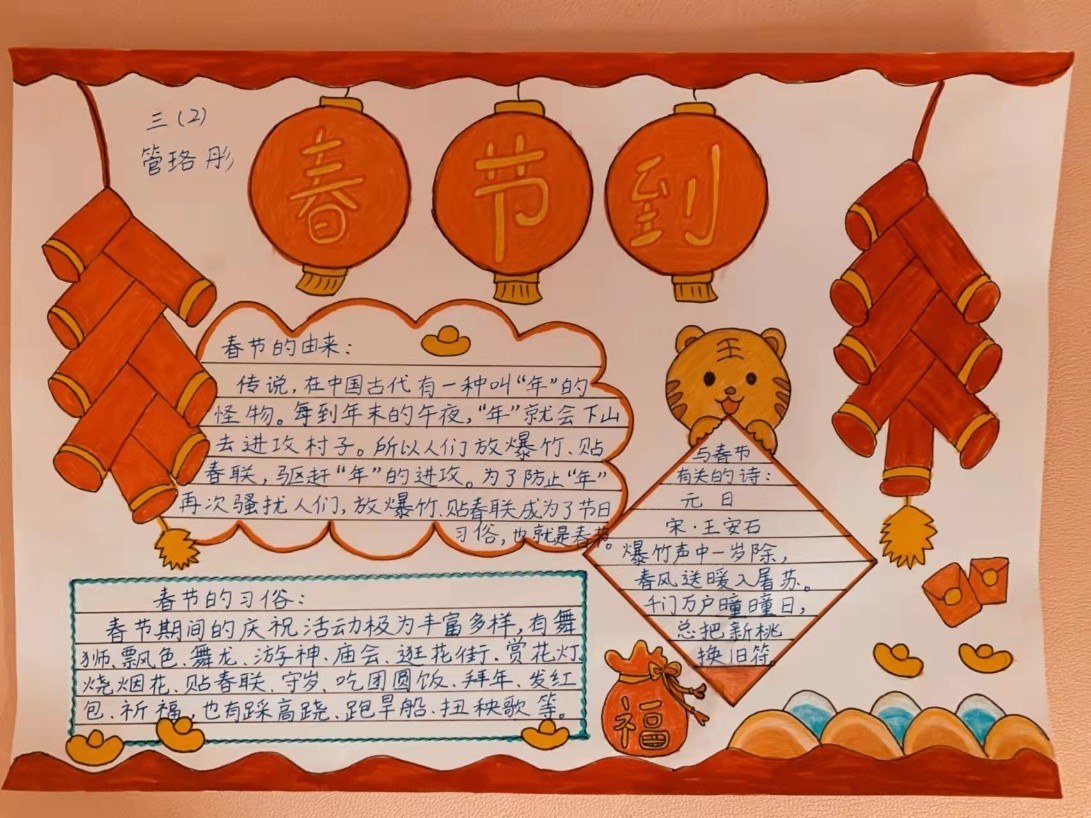 三（2）
管珞彤
春节到
春节的由来：
传说，在中国古代有一种叫“年”的
怪物。每到年末的午夜，“年”就会下山
去进攻村子。所以人们放爆竹、贴
春联，驱赶“年”的进攻。为了防止“年”
再次骚扰人们，放爆竹、贴春联成为了节日
习俗，也就是春节。
与春节
有关的诗：
元日
宋·王安石
爆竹声中一岁除，
春风送暖入屠苏。
千门万户瞳瞳日，
总把新桃
换旧符。
春节的习俗：
春节期间的庆祝活动极为丰富多样，有舞
狮、飘色、舞龙、游神、庙会、逛花街、赏花灯
烧烟花、贴春联、守岁、吃团圆饭、拜年、发红
包、祈福，也有踩高跷、跑旱船、扭秧歌等。
福